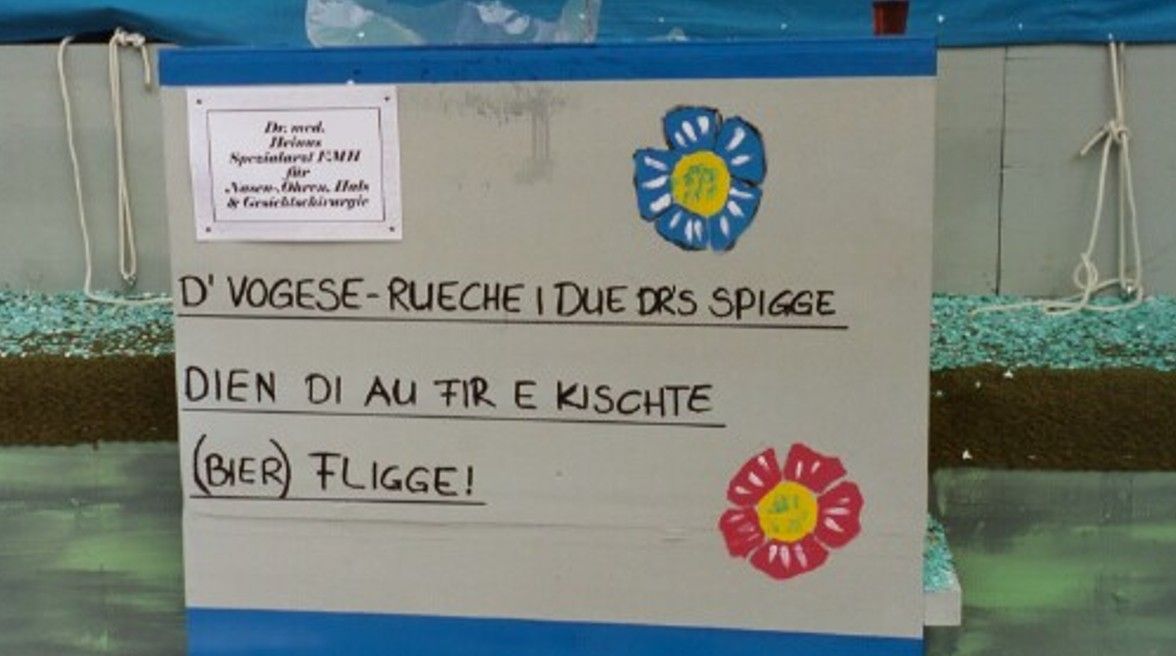 Dr. med.
Heinus
Spezialarzt FMH
für
Nasen-, Ohren, Hals
& Gesichtschirurgie
D' VOGESE-RUECHE I DUE DR'S SPIGGE
DIEN DI AU FIR E KISCHTE
(BIER) FLIGGE!